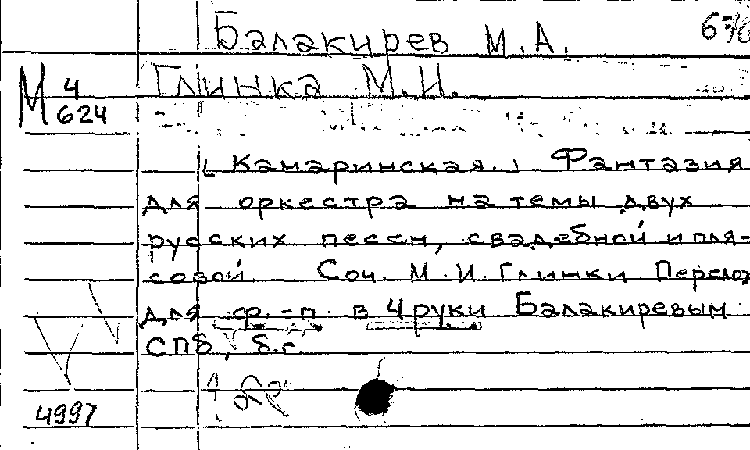 Балакирев М.А.
Глинка М.И.
М 4
624
[Камаринская.] Фантазия
для оркестра на темы двух
русских песен, свадебной и пля-
совой Соч. М.И. Глинки Перелож
для ф.-п в 4 руки Балакиревым
СПб, б.г.
4997